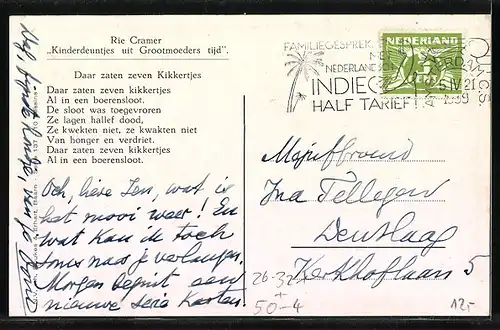 Rie Cramer
„Kinderdeuntjes uit Grootmoeders tijd”.
Daar zaten zeven Kikkertjes
Daar zaten zeven kikkertjes
Al in een boerensloot.
De sloot was toegevroren
Ze lagen half dood,
Ze kwekten niet, ze kwakten niet
Van honger en verdriet.
Daar zaten zeven kikkertjes
Al in een boerensloot.
Och, lieve Ien, wat is
het mooi weer! En
wat kan ik toch
soms naar je verlangen.
Morgen begint een
nieuwe serie Kaarten.
FAMILIEGESPREK
NEDERLAND
INDIE
HALF TARIEF
NEDERLAND
5 IV 21
1939
Mejuffrouw
Ina Tellegen
Den Haag
Kerkhoflaan 5
26-32
50-4
12,-